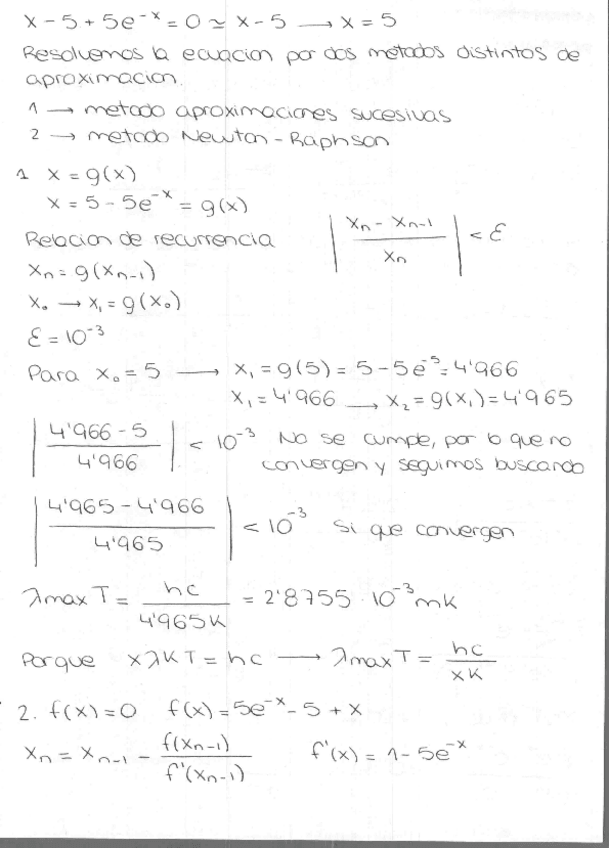 x - 5 + 5e^-x = 0 ≃ x - 5 → x = 5
Resolvemos la ecuacion por dos metodos distintos de
aproximacion.
1 → metodo aproximaciones sucesivas
2 → metodo Newton-Raphson
1 x = g(x)
x = 5 - 5e^-x = g(x)
Relacion de recurrencia
| (x_n - x_n-1) / x_n | < ε
x_n = g(x_n-1)
x_0 → x_1 = g(x_0)
ε = 10^-3
Para x_0 = 5 → x_1 = g(5) = 5 - 5e^-5 = 4'966
x_1 = 4'966 → x_2 = g(x_1) = 4'965
| (4'966 - 5) / 4'966 | < 10^-3 No se cumple, por lo que no
convergen y seguimos buscando
| (4'965 - 4'966) / 4'965 | < 10^-3 Si que convergen
λmax T = hc / 4'965K = 2'8755 · 10^-3 mK
Porque xλKT = hc → λmax T = hc / xK
2. f(x) = 0 f(x) = 5e^-x - 5 + x
x_n = x_n-1 - f(x_n-1) / f'(x_n-1) f'(x) = 1 - 5e^-x